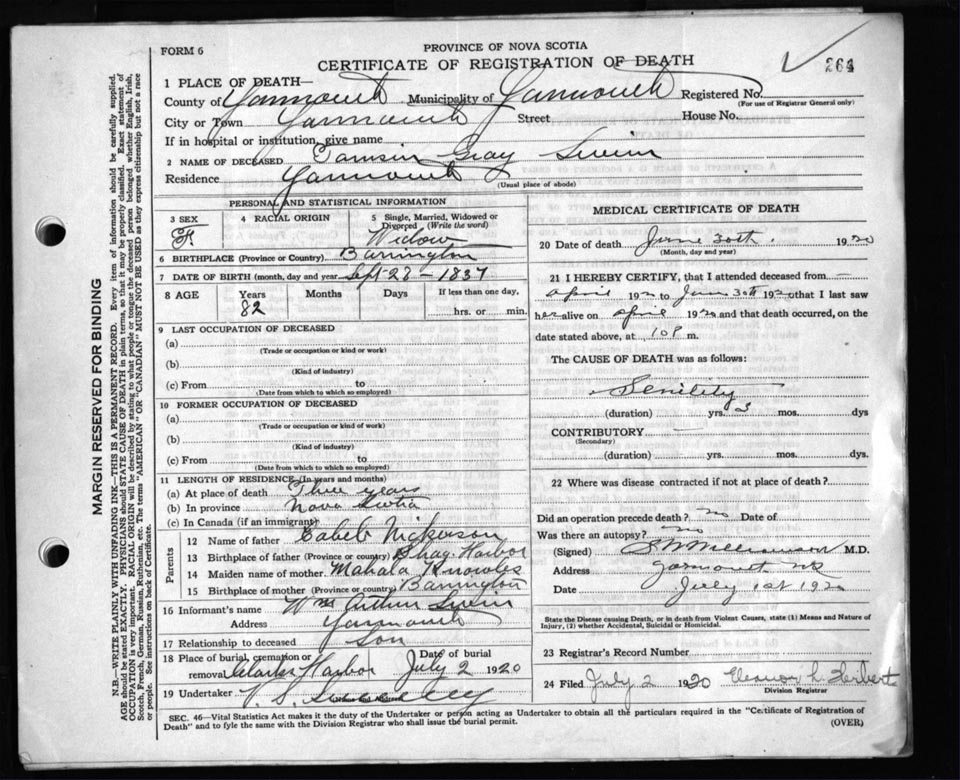 FORM 6
PROVINCE OF NOVA SCOTIA
CERTIFICATE OF REGISTRATION OF DEATH
264
1 PLACE OF DEATH—
County of Yarmouth Municipality of Yarmouth Registered No.
(For use of Registrar General only)
City or Town Yarmouth Street House No.
If in hospital or institution, give name
2 NAME OF DECEASED Tamsin Gray Swim
Residence Yarmouth
(Usual place of abode)
PERSONAL AND STATISTICAL INFORMATION
3 SEX
F
4 RACIAL ORIGIN
5 Single, Married, Widowed or
Divorced (Write the word)
Widow
6 BIRTHPLACE (Province or Country) Barrington
7 DATE OF BIRTH (month, day and year Sept-28-1837
8 AGE Years Months Days If less than one day,
82 hrs. or min.
9 LAST OCCUPATION OF DECEASED
(a)
(Trade or occupation or kind or work)
(b)
(Kind of industry)
(c) From to
(Date from which to which so employed)
10 FORMER OCCUPATION OF DECEASED
(a)
(Trade or occupation or kind or work)
(b)
(Kind of industry)
(c) From to
(Date from which to which so employed)
11 LENGTH OF RESIDENCE (In years and months)
(a) At place of death Three years
(b) In province Nova Scotia
(c) In Canada (if an immigrant)
Parents
12 Name of father Caleb Nickerson
13 Birthplace of father (Province or country) Shag Harbor
14 Maiden name of mother Mahala Knowles
15 Birthplace of mother (Province or country) Barrington
16 Informant's name Wm Arthur Swim
Address Yarmouth
17 Relationship to deceased Son
18 Place of burial, cremation or Date of burial
removal Clarks Harbor July 2 1920
19 Undertaker V. S.
MEDICAL CERTIFICATE OF DEATH
20 Date of death June 30th. 1920
(Month, day and year)
21 I HEREBY CERTIFY, that I attended deceased from
April 192 to June 30th 1920 that I last saw
her alive on April 1920 and that death occurred, on the
date stated above, at 10 P m.
The CAUSE OF DEATH was as follows:
Senility
(duration) yrs. 3 mos. dys
CONTRIBUTORY
(Secondary)
(duration) yrs. mos. dys.
22 Where was disease contracted if not at place of death?
Did an operation precede death? no Date of
Was there an autopsy? no
(Signed) M.D.
Address Yarmouth NS
Date July 1st 1920
State the Disease causing Death, or in death from Violent Causes, state (1) Means and Nature of
Injury, (2) whether Accidental, Suicidal or Homicidal.
23 Registrar's Record Number
24 Filed July 2 1920 Eleanor L. Herbert
Division Registrar
SEC. 46—Vital Statistics Act makes it the duty of the Undertaker or person acting as Undertaker to obtain all the particulars required in the "Certificate of Registration of
Death" and to fyle the same with the Division Registrar who shall issue the burial permit.
(OVER)
MARGIN RESERVED FOR BINDING
N.B.—WRITE PLAINLY WITH UNFADING INK—THIS IS A PERMANENT RECORD. Every item of information should be carefully supplied.
AGE should be stated EXACTLY. PHYSICIANS should STATE CAUSE OF DEATH in plain terms, so that it may be properly classified. Exact statement of
OCCUPATION is very important. RACIAL ORIGIN will be described by stating to what people or tongue the deceased person belonged whether English, Irish,
Scotch, French, German, Russian, Ruthenian, etc. The terms "AMERICAN" OR "CANADIAN" MUST NOT BE USED as they express citizenship but not a race
or people. See instructions on back of Certificate.